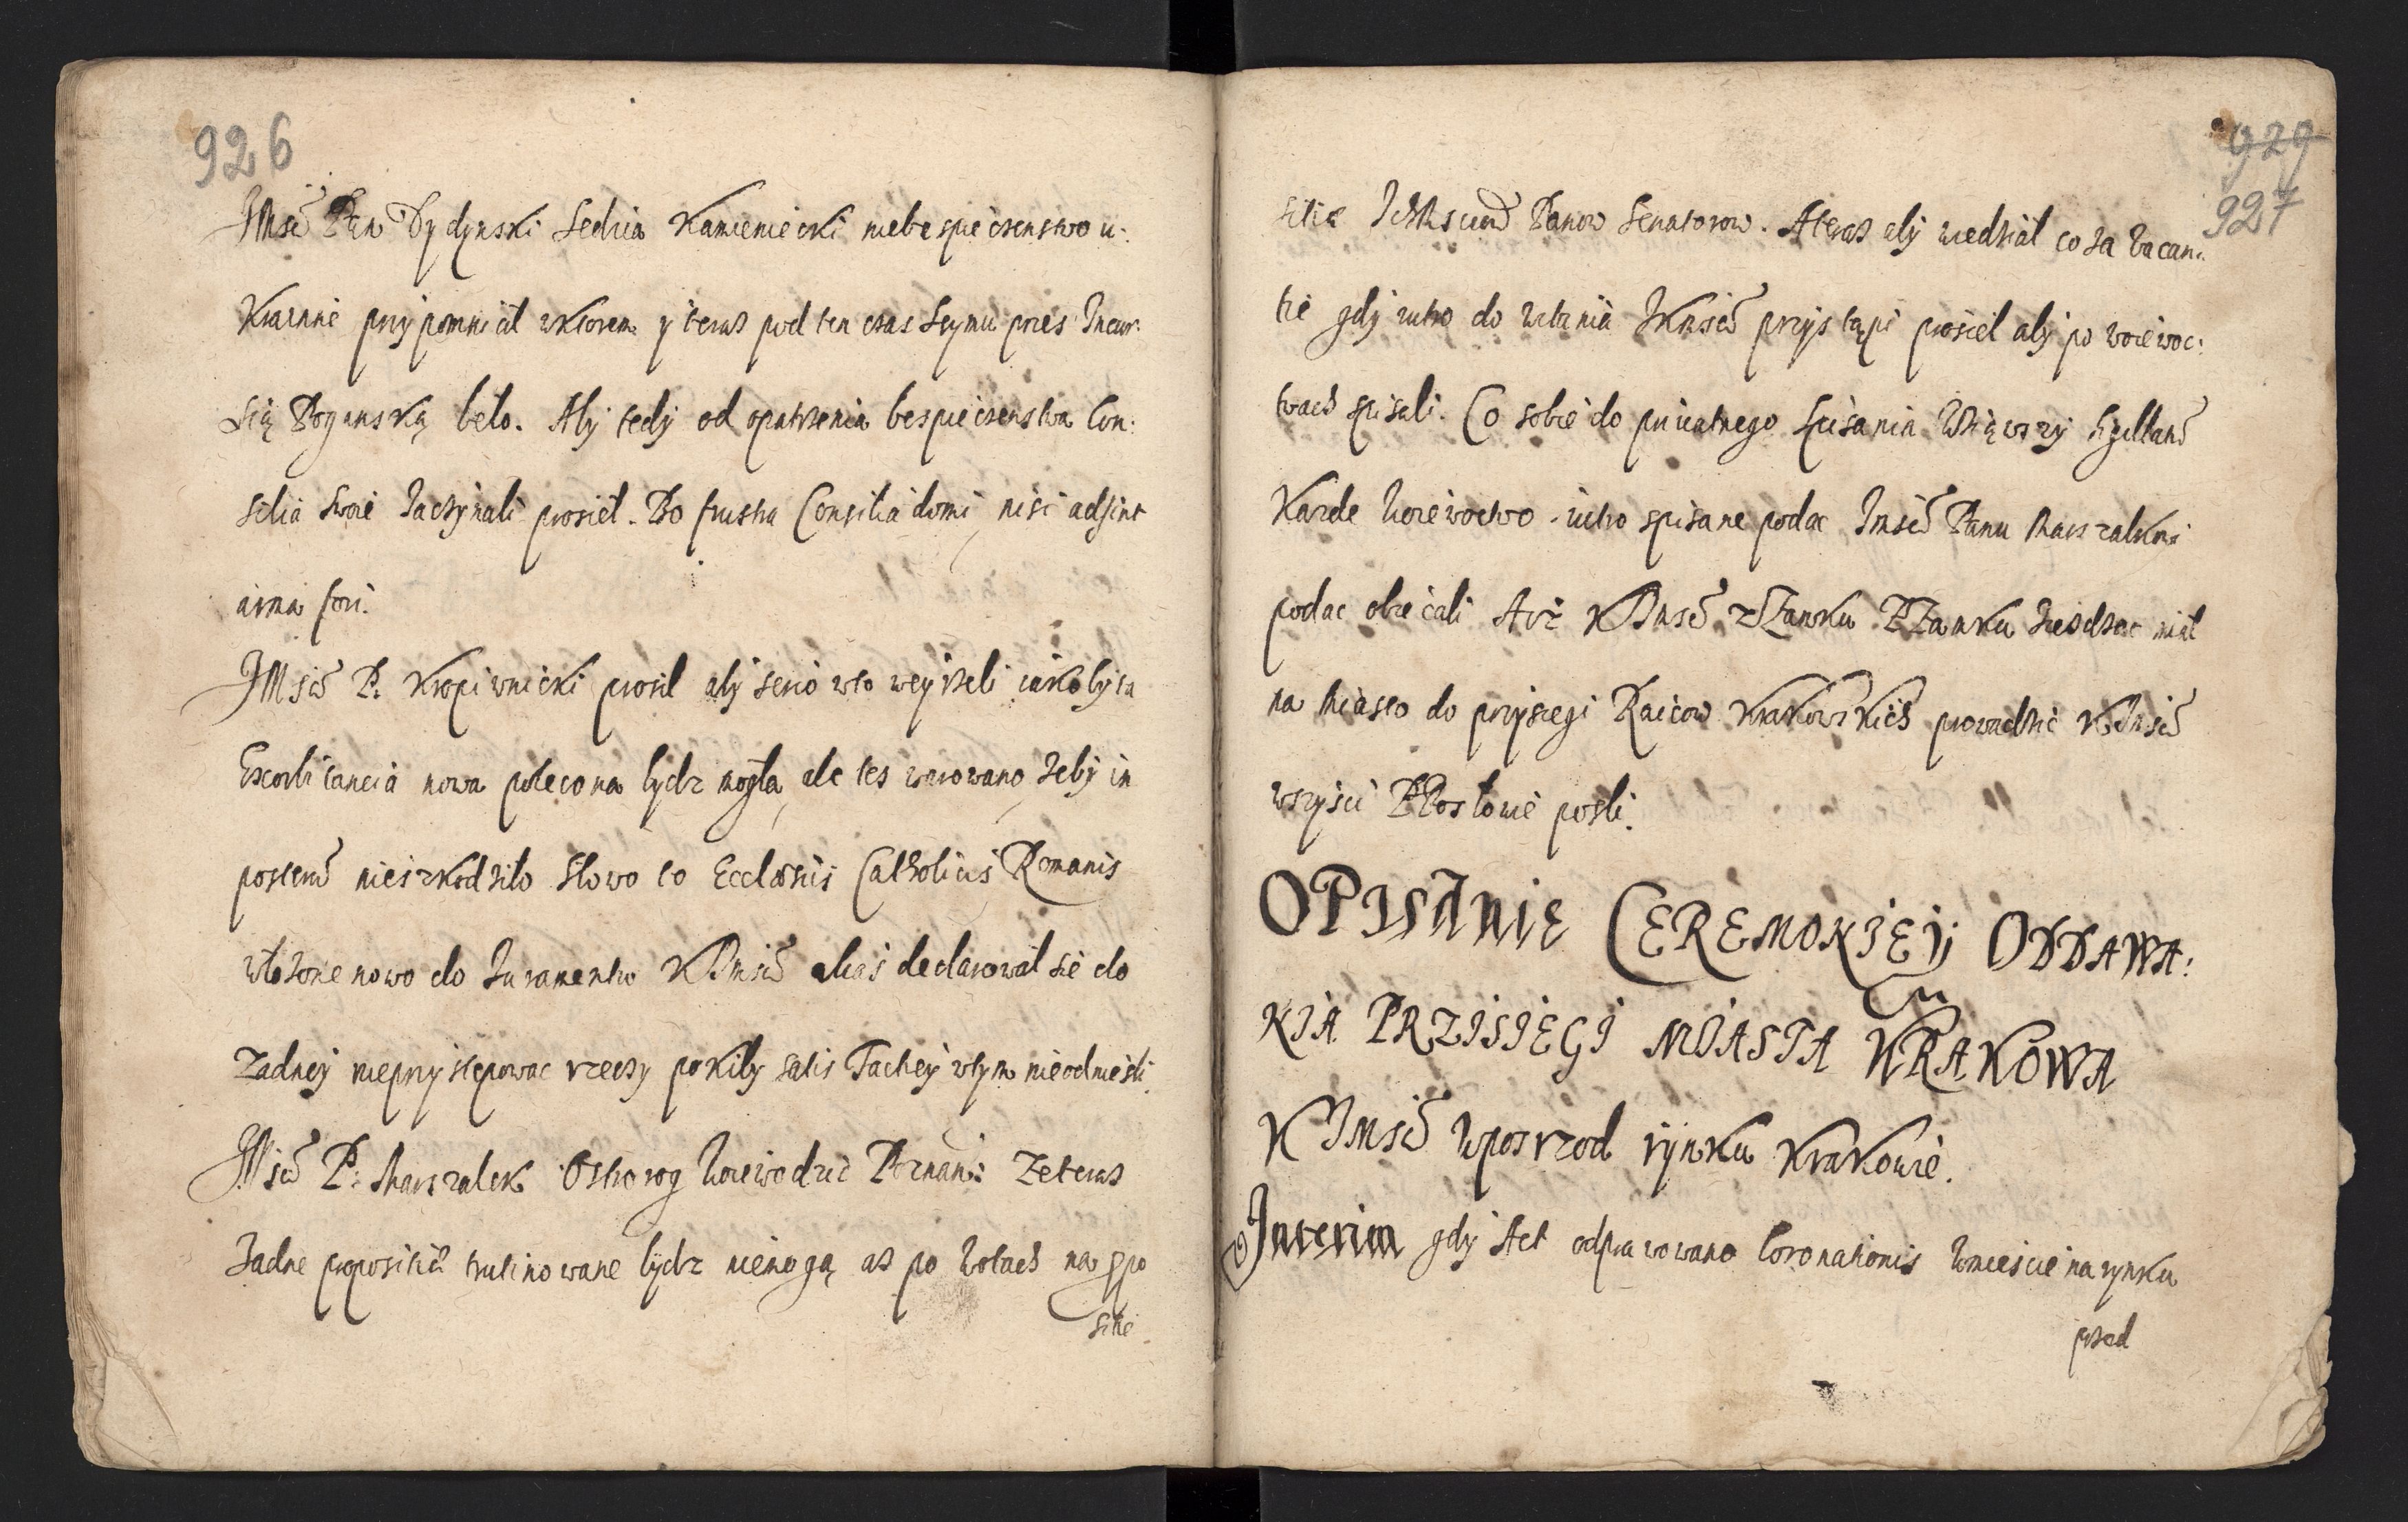 926
JMsć Pan Dydynski Sedzia Kamieniecki niebespieczenstwo u:
Krainne przypomniał wktorem y teras pod ten czas Seymu przes Incur:
sią Poganską beło. Aby tedy od opatrzenia bespieczenstwa Con:
silia swoie Zaczynali prosieł. Bo frustra Consilia domi, nisi adsint
arma fori.
JMsć P. Kropiwnicki prosił aby serio wto weyrzeli iakoby ta
Exorbitancia nowa polecona bydz mogła, ale tes warowano, zeby in
posterū nieszkodziło słowo to Ecclesiis Catholicis Romanis
włozone nowo do Iuramentu KJMsci alias declarował sie do
Zadney nieprzystępowac rzeczy pokiby satis Factiey wtym nieodniesli.
JMsć P: Marszałek Ostrorog Woiewodzic Poznan: Ze teras
Zadne propositie trutinowane bydz niemogą as po Wotach na ppo
sitie
929
927
sitie Ichmsciow Panow Senatorow. A teras aby wiedział co za Vacan:
tie gdy iutro do witania JKMsci przystąpi prosieł aby po woiewoc:
twach spisali. Co sobie do priuatnego spisania Wziąwszy
Kazde Woiewoctwo iutro spisane podac Jmsci Panu Marszalkowi
podac obiecali A iz KJMsć z Zamku Ziesdzac miał
na miasto do przysięgi Raicow Krakowskich prowadzic KJMsci
wszysci PPosłowie posli.
OPISANIE CEREMONIEY ODDAWA:
NIA PRZISIĘGI MIASTA KRAKOWA
KJMsci Wposrzod rynku Krakowie.
Interim gdy Act odprawowano Coronationis Wmiescie na rynku
przed